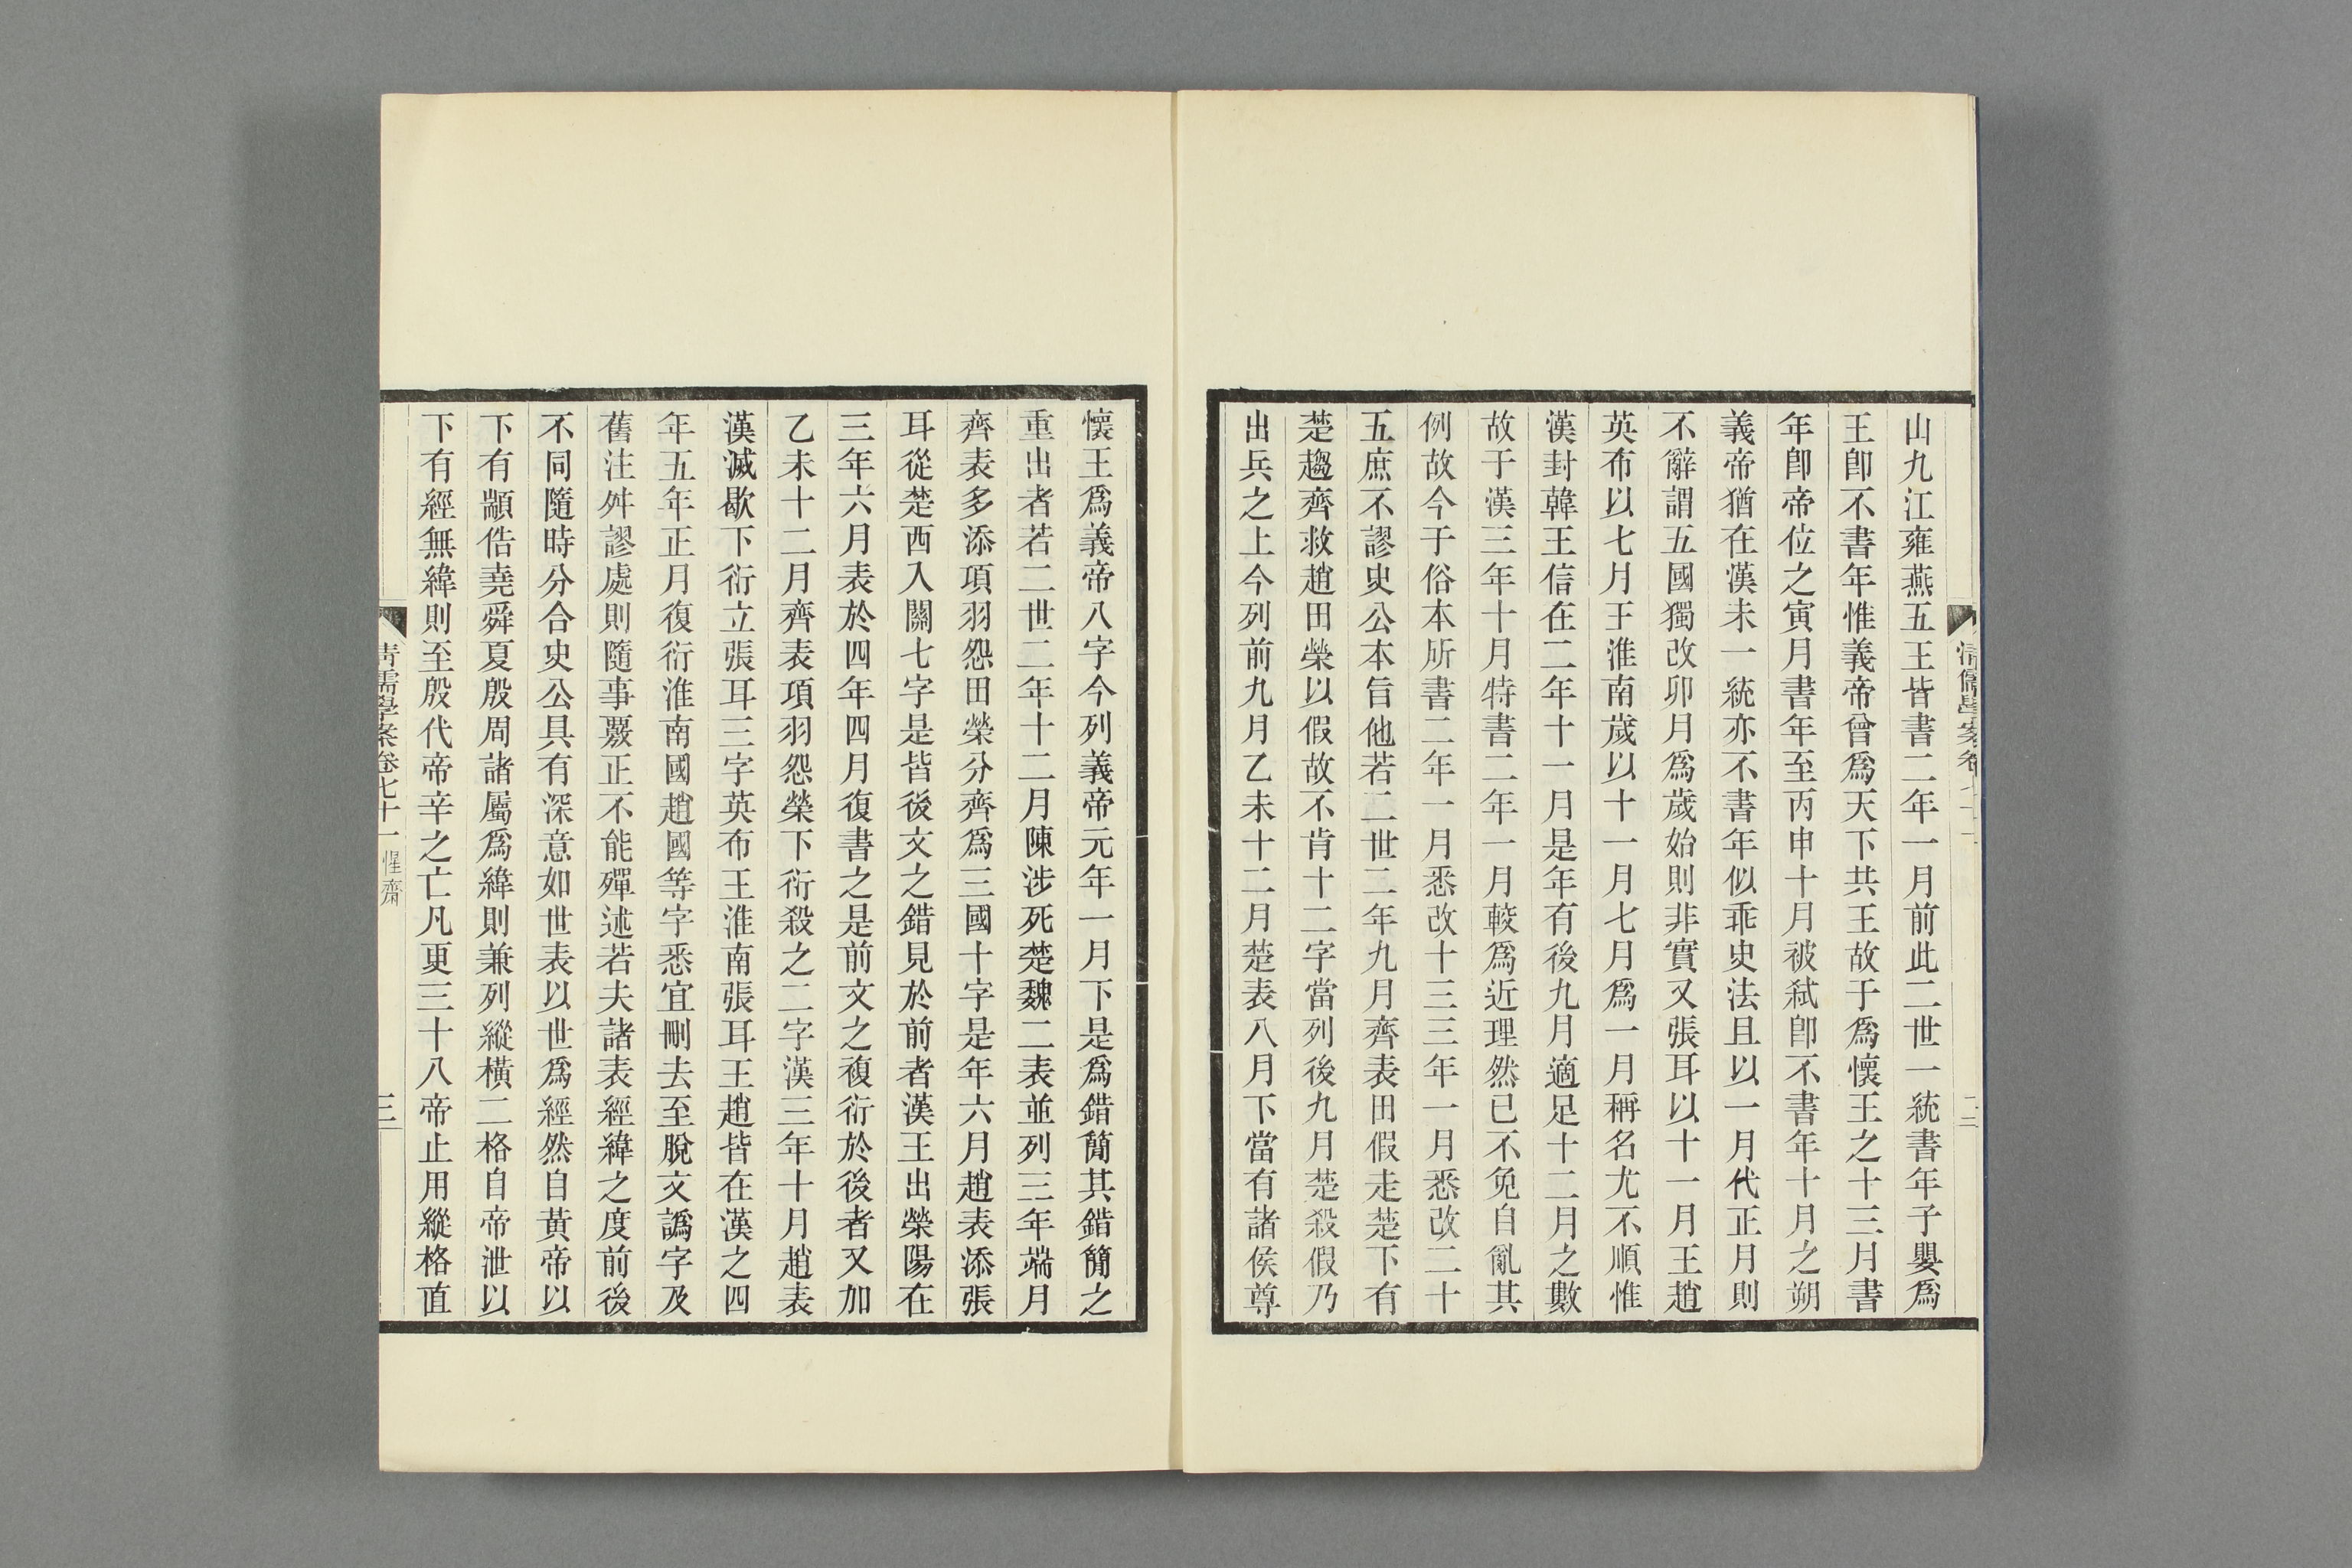 山九江雍燕五王皆書二年一月前此二世一統書年子嬰爲
王卽不書年惟義帝曾爲天下共王故于爲懷王之十三月書
年卽帝位之寅月書年至丙申十月被弒卽不書年十月之朔
義帝猶在漢未一統亦不書年似乖史法且以一月代正月則
不辭謂五國獨改卯月爲歲始則非實又張耳以十一月王趙
英布以七月王淮南歲以十一月七月爲一月稱名尤不順惟
漢封韓王信在二年十一月是年有後九月適足十二月之數
故于漢三年十月特書二年一月較爲近理然已不免自亂其
例故今于俗本所書二年一月悉改十三三年一月悉改二十
五庶不謬史公本旨他若二世二年九月齊表田假走楚下有
楚趨齊救趙田榮以假故不肯十二字當列後九月楚殺假乃
出兵之上今列前九月乙未十二月楚表八月下當有諸侯尊
懷王爲義帝八字今列義帝元年一月下是爲錯簡其錯簡之
重出者若二世二年十二月陳涉死楚魏二表並列三年端月
齊表多添項羽怨田榮分齊爲三國十字是年六月趙表添張
耳從楚西入關七字是皆後文之錯見於前者漢王出榮陽在
三年六月表於四年四月復書之是前文之複衍於後者又加
乙未十二月齊表項羽怨榮下衍殺之二字漢三年十月趙表
漢滅歇下衍立張耳三字英布王淮南張耳王趙皆在漢之四
年五年正月復衍淮南國趙國等字悉宜刪去至脫文譌字及
舊注舛謬處則隨事覈正不能殫述若夫諸表經緯之度前後
不同隨時分合史公具有深意如世表以世爲經然自黃帝以
下有顓俈堯舜夏殷周諸屬爲緯則兼列縱橫二格自帝泄以
下有經無緯則至殷代帝辛之亡凡更三十八帝止用縱格直
清儒學案卷七十一 惺齋